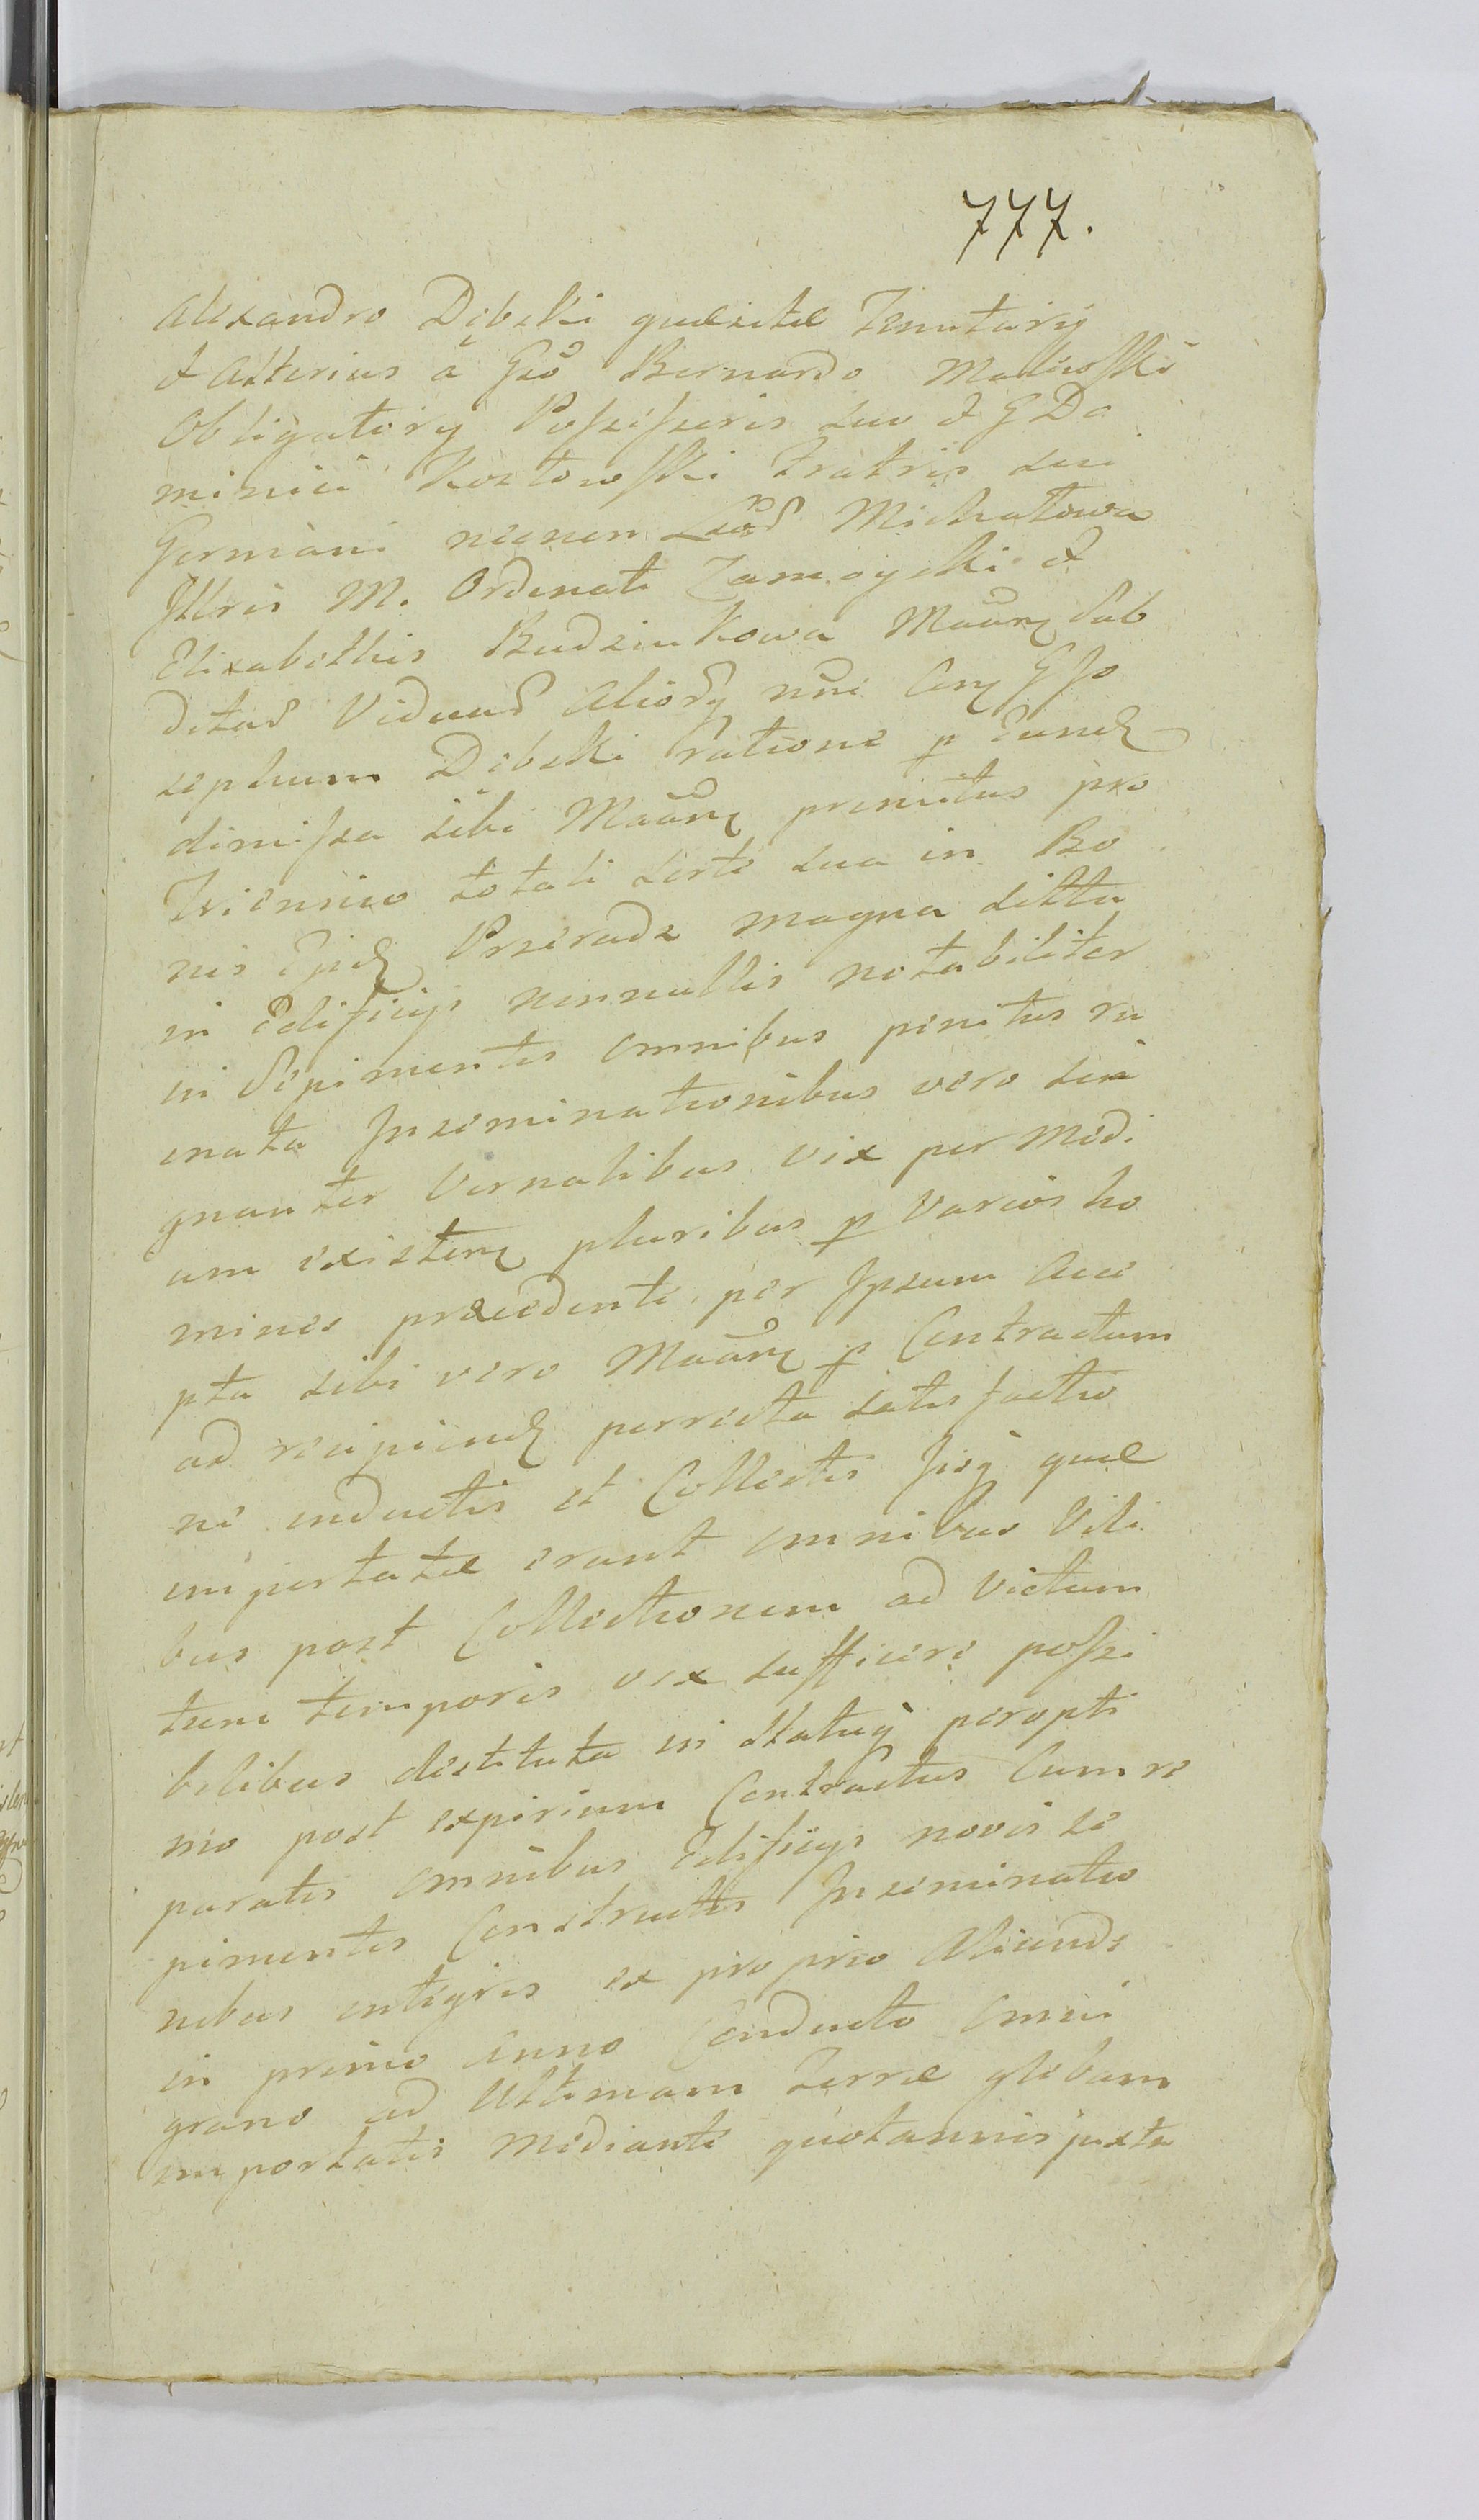 777.
Alexandro Dębski quaesitae Tenutarij
& Alterius a Gso Bernardo Malewski
Obligatorij Possessoris suo & G Do
minici Kozłowski Fratris sui
Germani necnon Labd Michałowa
Illris M. Ordinati Zamoyski &
Elizabethis Budzinkowa Maarz Sub
ditas Viduas Aliorq nri Crz G Jo
sephum Dębski ratione p Eundz
dimissa sibi Maarz primitus pro
Triennio totali sorte sua in Bo
nis Ejudz Przerade magna dicta
in Edificijs nonnullis notabiliter
in Sepimentis omnibus penitus ru
inata Inseminationibus vero sin
gnanter Vernalibus vix per Medi
um existenz pluribus p Varios ho
mines praecedenti per Ipsum Acce
pta sibi vero Maarz p Contractum
ad recipiendz perrecta satisfactio
ne inductis et Collectis sicq quae
importatae erant omnibus Vili
bus post Collectionem ad Victum
tum temporis vix sufficere possi
bilibus destituta in Statuq peropti
mo post expirium Contractus Cum re
paratis omnibus Edificijs novis se
pimentis Constructis Inseminatio
nibus integris ex proprio Aliunde
in primo Anno Conducto omni
grano ad Ultimam terrae glebam
importatis Mediante quotannis juxta